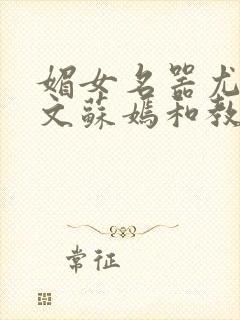 媚女名器尤
文蘇媽和教
常征